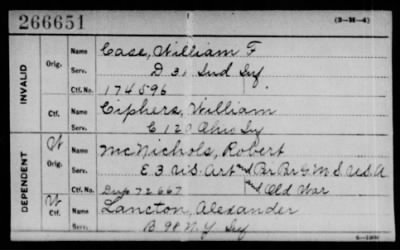 266651
(3-M-4)
INVALID
Orig.
Name Case, William F
Serv. D 31 Ind Inf
Ctf. No. 174596
Ctf.
Name Ciphers, William
Serv. C 120 Ohio Inf
DEPENDENT
W Orig.
Name McNichols, Robert
Serv. E 3 U.S. Art and Pr Pr G M S U.S.A
Ctf. No. 72667 and Old War
W Ctf.
Name Lancton, Alexander
Serv. B 98 N.Y. Inf